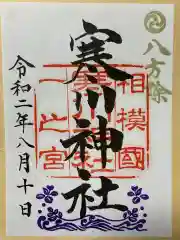 八方除
寒川神社
相模國
一之宮
令和二年八月十日